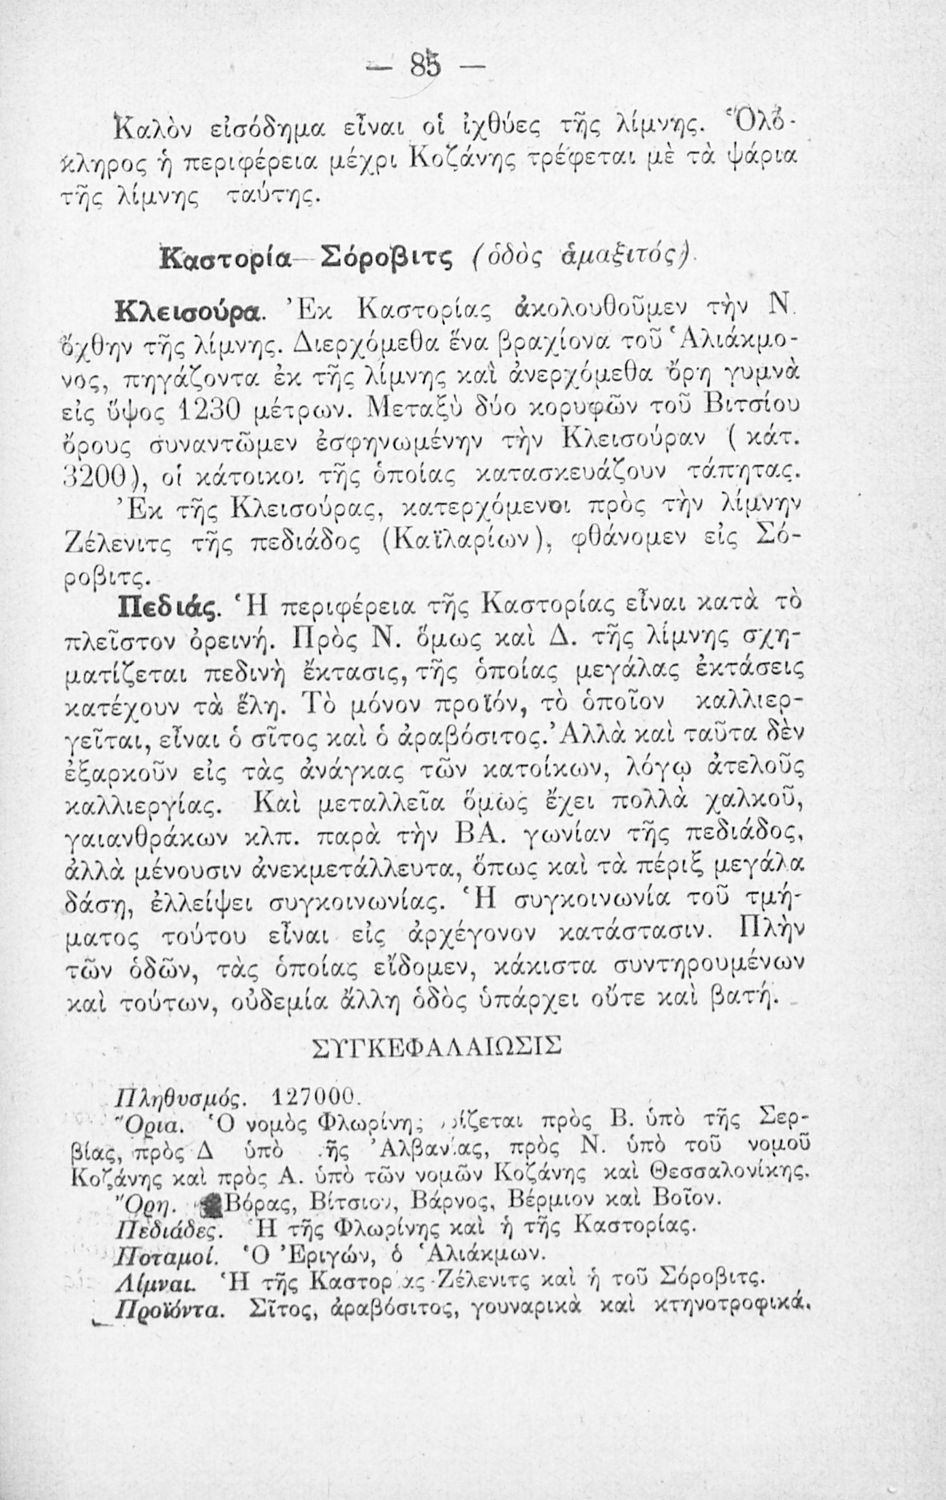 — 85 —
Καλὸν εἰσόδημα εἶναι οἱ ἰχθύες τῆς λίμνης. Ὁλό-
κληρος ἡ περιφέρεια μέχρι Κοζάνης τρέφεται μὲ τὰ ψάρια
τῆς λίμνης ταύτης.
Καστορία — Σόροβιτς (ὁδὸς ἁμαξιτός)
Κλεισούρα. Ἐκ Καστορίας ἀκολουθοῦμεν τὴν Ν.
ὄχθην τῆς λίμνης. Διερχόμεθα ἕνα βραχίονα τοῦ Ἁλιάκμο-
νος, πηγάζοντα ἐκ τῆς λίμνης καὶ ἀνερχόμεθα ὄρη γυμνὰ
εἰς ὕψος 1230 μέτρων. Μεταξὺ δύο κορυφῶν τοῦ Βιτσίου
ὄρους συναντῶμεν ἐσφηνωμένην τὴν Κλεισούραν ( κάτ.
3200), οἱ κάτοικοι τῆς ὁποίας κατασκευάζουν τάπητας.
Ἐκ τῆς Κλεισούρας, κατερχόμενοι πρὸς τὴν λίμνην
Ζέλενιτς τῆς πεδιάδος (Καϊλαρίων), φθάνομεν εἰς Σό-
ροβιτς.
Πεδιάς. Ἡ περιφέρεια τῆς Καστορίας εἶναι κατὰ τὸ
πλεῖστον ὀρεινή. Πρὸς Ν. ὅμως καὶ Δ. τῆς λίμνης σχη-
ματίζεται πεδινὴ ἔκτασις, τῆς ὁποίας μεγάλας ἐκτάσεις
κατέχουν τὰ ἕλη. Τὸ μόνον προϊόν, τὸ ὁποῖον καλλιερ-
γεῖται, εἶναι ὁ σῖτος καὶ ὁ ἀραβόσιτος. Ἀλλὰ καὶ ταῦτα δὲν
ἐξαρκοῦν εἰς τὰς ἀνάγκας τῶν κατοίκων, λόγῳ ἀτελοῦς
καλλιεργίας. Καὶ μεταλλεῖα ὅμως ἔχει πολλὰ χαλκοῦ,
γαιανθράκων κλπ. παρὰ τὴν ΒΑ. γωνίαν τῆς πεδιάδος,
ἀλλὰ μένουσιν ἀνεκμετάλλευτα, ὅπως καὶ τὰ πέριξ μεγάλα
δάση, ἐλλείψει συγκοινωνίας. Ἡ συγκοινωνία τοῦ τμή-
ματος τούτου εἶναι εἰς ἀρχέγονον κατάστασιν. Πλὴν
τῶν ὁδῶν, τὰς ὁποίας εἴδομεν, κάκιστα συντηρουμένων
καὶ τούτων, οὐδεμία ἄλλη ὁδὸς ὑπάρχει οὔτε καὶ βατή.
ΣΥΓΚΕΦΑΛΑΙΩΣΙΣ
Πληθυσμός. 127000.
Ὅρια. Ὁ νομὸς Φλωρίνης ὁρίζεται πρὸς Β. ὑπὸ τῆς Σερ-
βίας, πρὸς Δ ὑπὸ τῆς Ἀλβανίας, πρὸς Ν. ὑπὸ τοῦ νομοῦ
Κοζάνης καὶ πρὸς Α. ὑπὸ τῶν νομῶν Κοζάνης καὶ Θεσσαλονίκης.
Ὄρη. Βόρας, Βίτσιον, Βάρνος, Βέρμιον καὶ Βοῖον.
Πεδιάδες. Ἡ τῆς Φλωρίνης καὶ ἡ τῆς Καστορίας.
Ποταμοί. Ὁ Ἐριγών, ὁ Ἁλιάκμων.
Λίμναι. Ἡ τῆς Καστορίας Ζέλενιτς καὶ ἡ τοῦ Σόροβιτς.
Προϊόντα. Σῖτος, ἀραβόσιτος, γουναρικὰ καὶ κτηνοτροφικά.